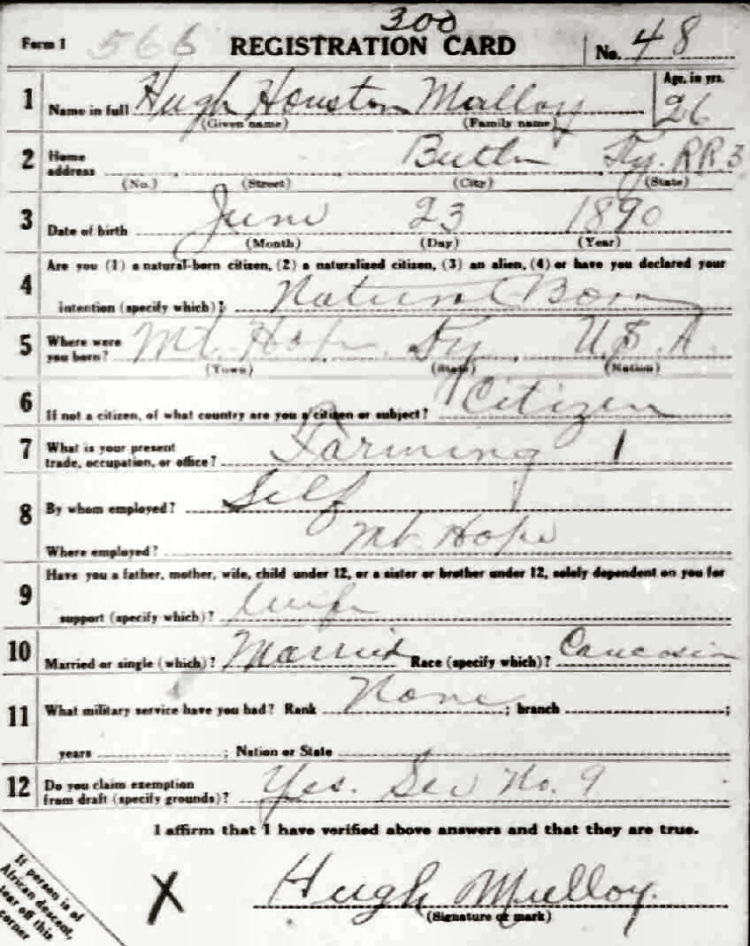 300
Form 1 566 REGISTRATION CARD No. 48
1 Name in full Hugh Houston Malloy Age, in yrs. 26
(Given name) (Family name)
2 Home address Butler Ky. RR3
(No.) (Street) (City) (State)
3 Date of birth June 23 1890
(Month) (Day) (Year)
4 Are you (1) a natural-born citizen, (2) a naturalized citizen, (3) an alien, (4) or have you declared your
intention (specify which)? Natural Born
5 Where were you born? Mt. Hope Ky. U.S.A.
(Town) (State) (Nation)
6 If not a citizen, of what country are you a citizen or subject? Citizen
7 What is your present trade, occupation, or office? Farming 1
8 By whom employed? Self
Where employed? Mt. Hope
9 Have you a father, mother, wife, child under 12, or a sister or brother under 12, solely dependent on you for
support (specify which)? Wife
10 Married or single (which)? Married Race (specify which)? Caucasin
11 What military service have you had? Rank None ; branch ;
years ; Nation or State
12 Do you claim exemption from draft (specify grounds)? Yes. See No. 9
I affirm that I have verified above answers and that they are true.
If person is of
African descent,
tear off this
corner
X Hugh Mulloy.
(Signature or mark)